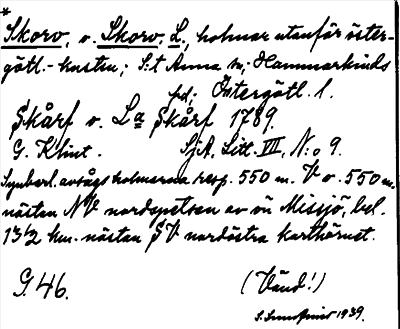 *
Skorv, o. Skorv, L., holmar utanför öster-
götl.-kusten; S:t Anna sn; Hammarkinds
hd; Östergötl. l.
Skårf o. La Skårf 1789.
G. Klint. SjA, Litt. VII, N:o 9.
Symberl. avsågs holmarna resp. 550 m. V o. 550 m.
nästan NV nordspetsen av ön Missjö, bel.
13½ km. nästan SV nordöstra karthörnet.
G. 46. (Vänd!)
1939.